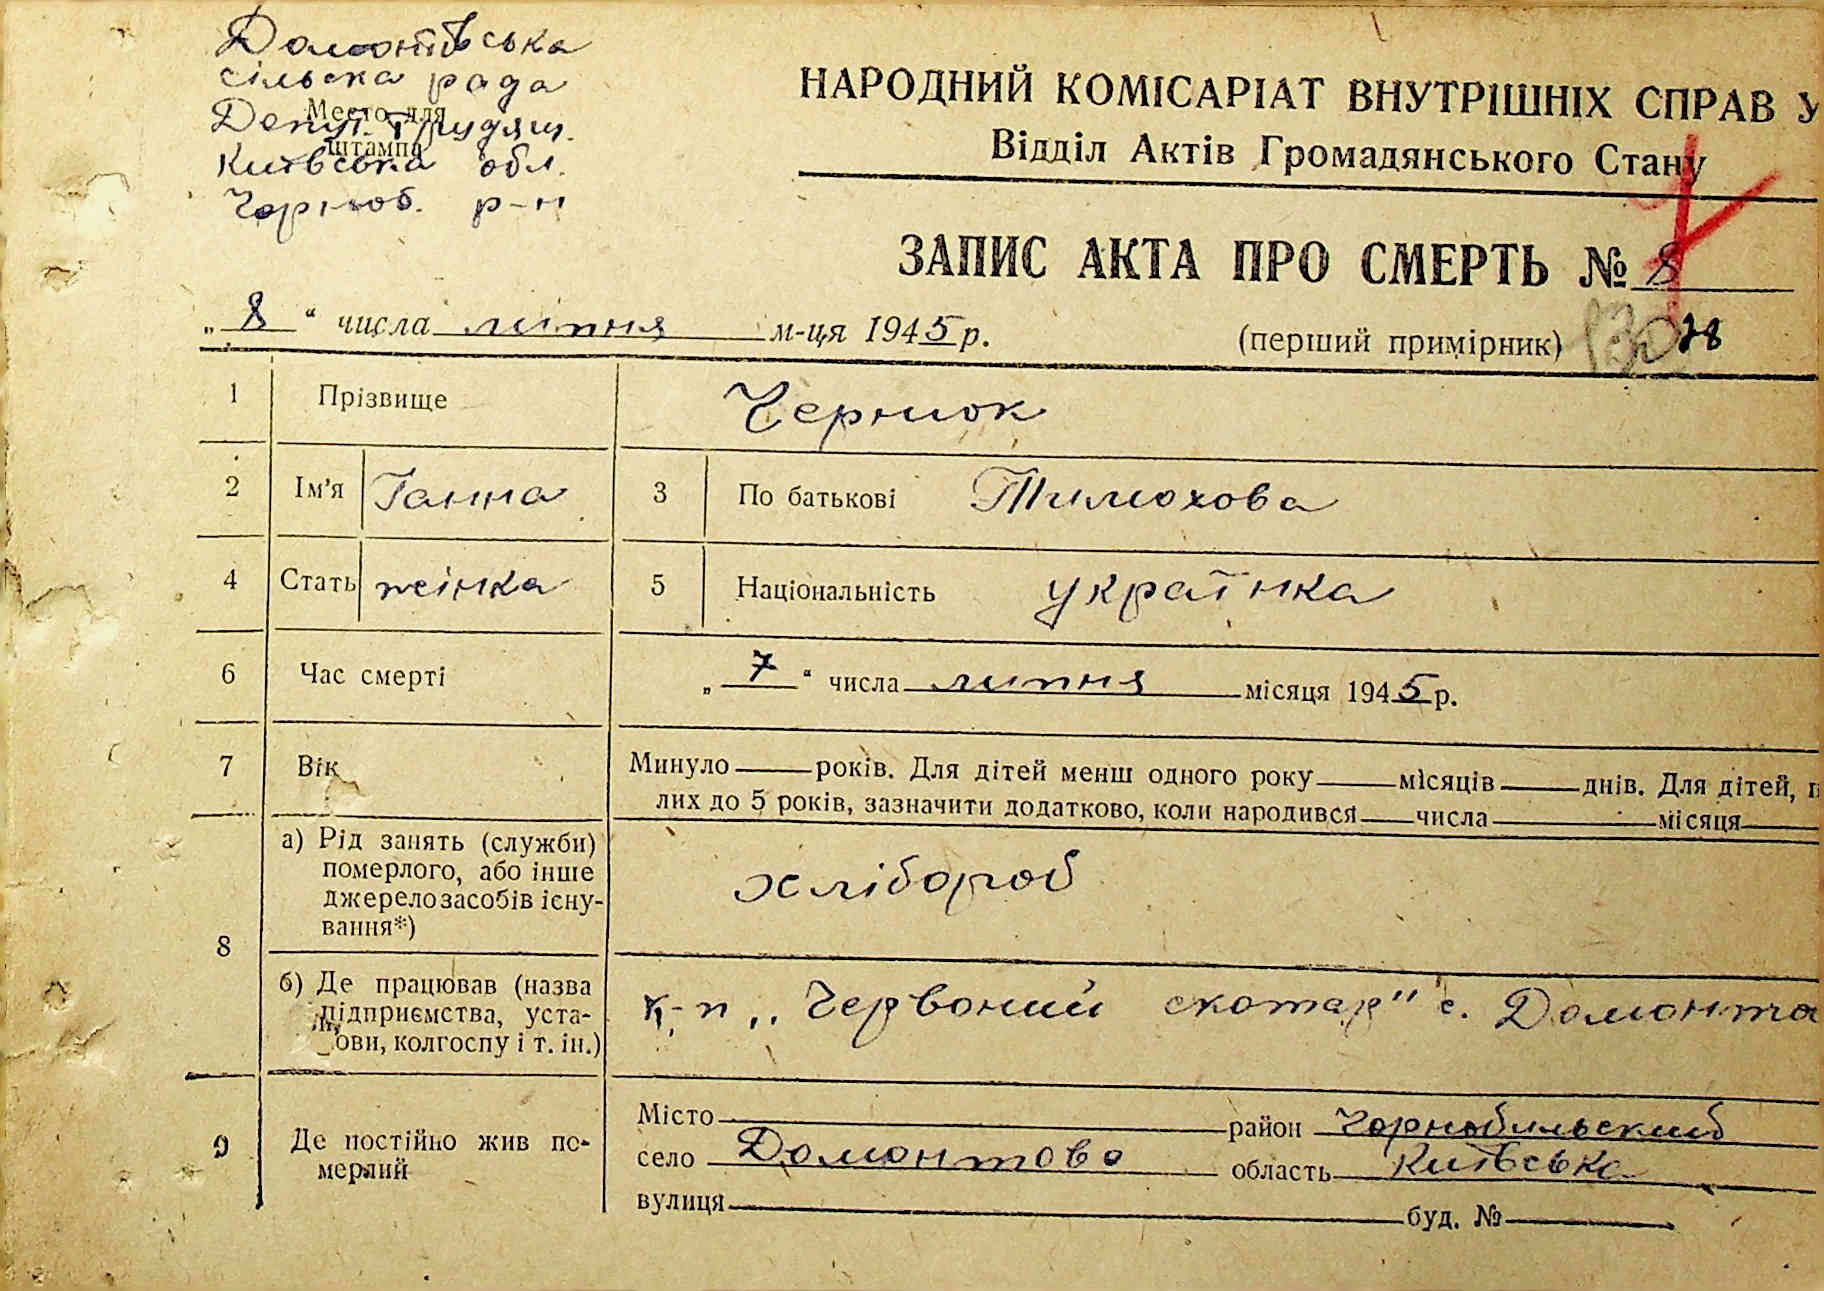 Домонтівська
сільська рада
Место для
Депут. Трудящ.
штампа
Київська обл.
Чорноб. р-н
НАРОДНИЙ КОМІСАРІАТ ВНУТРІШНІХ СПРАВ У
Відділ Актів Громадянського Стану
ЗАПИС АКТА ПРО СМЕРТЬ № 8
„ 8 “ числа липня м-ця 1945 р.
(перший примірник) 78
1 Прізвище Чернюк
2 Ім'я Ганна 3 По батькові Тимохова
4 Стать жінка 5 Національність українка
6 Час смерті „ 7 “ числа липня місяця 1945 р.
7 Вік Минуло років. Для дітей менш одного року місяців днів. Для дітей,
лих до 5 років, зазначити додатково, коли народився числа місяця
8 а) Рід занять (служби)
померлого, або інше
джерело засобів існу-
вання*)
хлібороб
б) Де працював (назва
підприємства, уста-
ови, колгоспу і т. ін.)
к-п „Червоний скотар" с. Домонто
9 Де постійно жив по-
мерлий
Місто район Чорнобильський
село Домонтово область Київська
вулиця буд. №